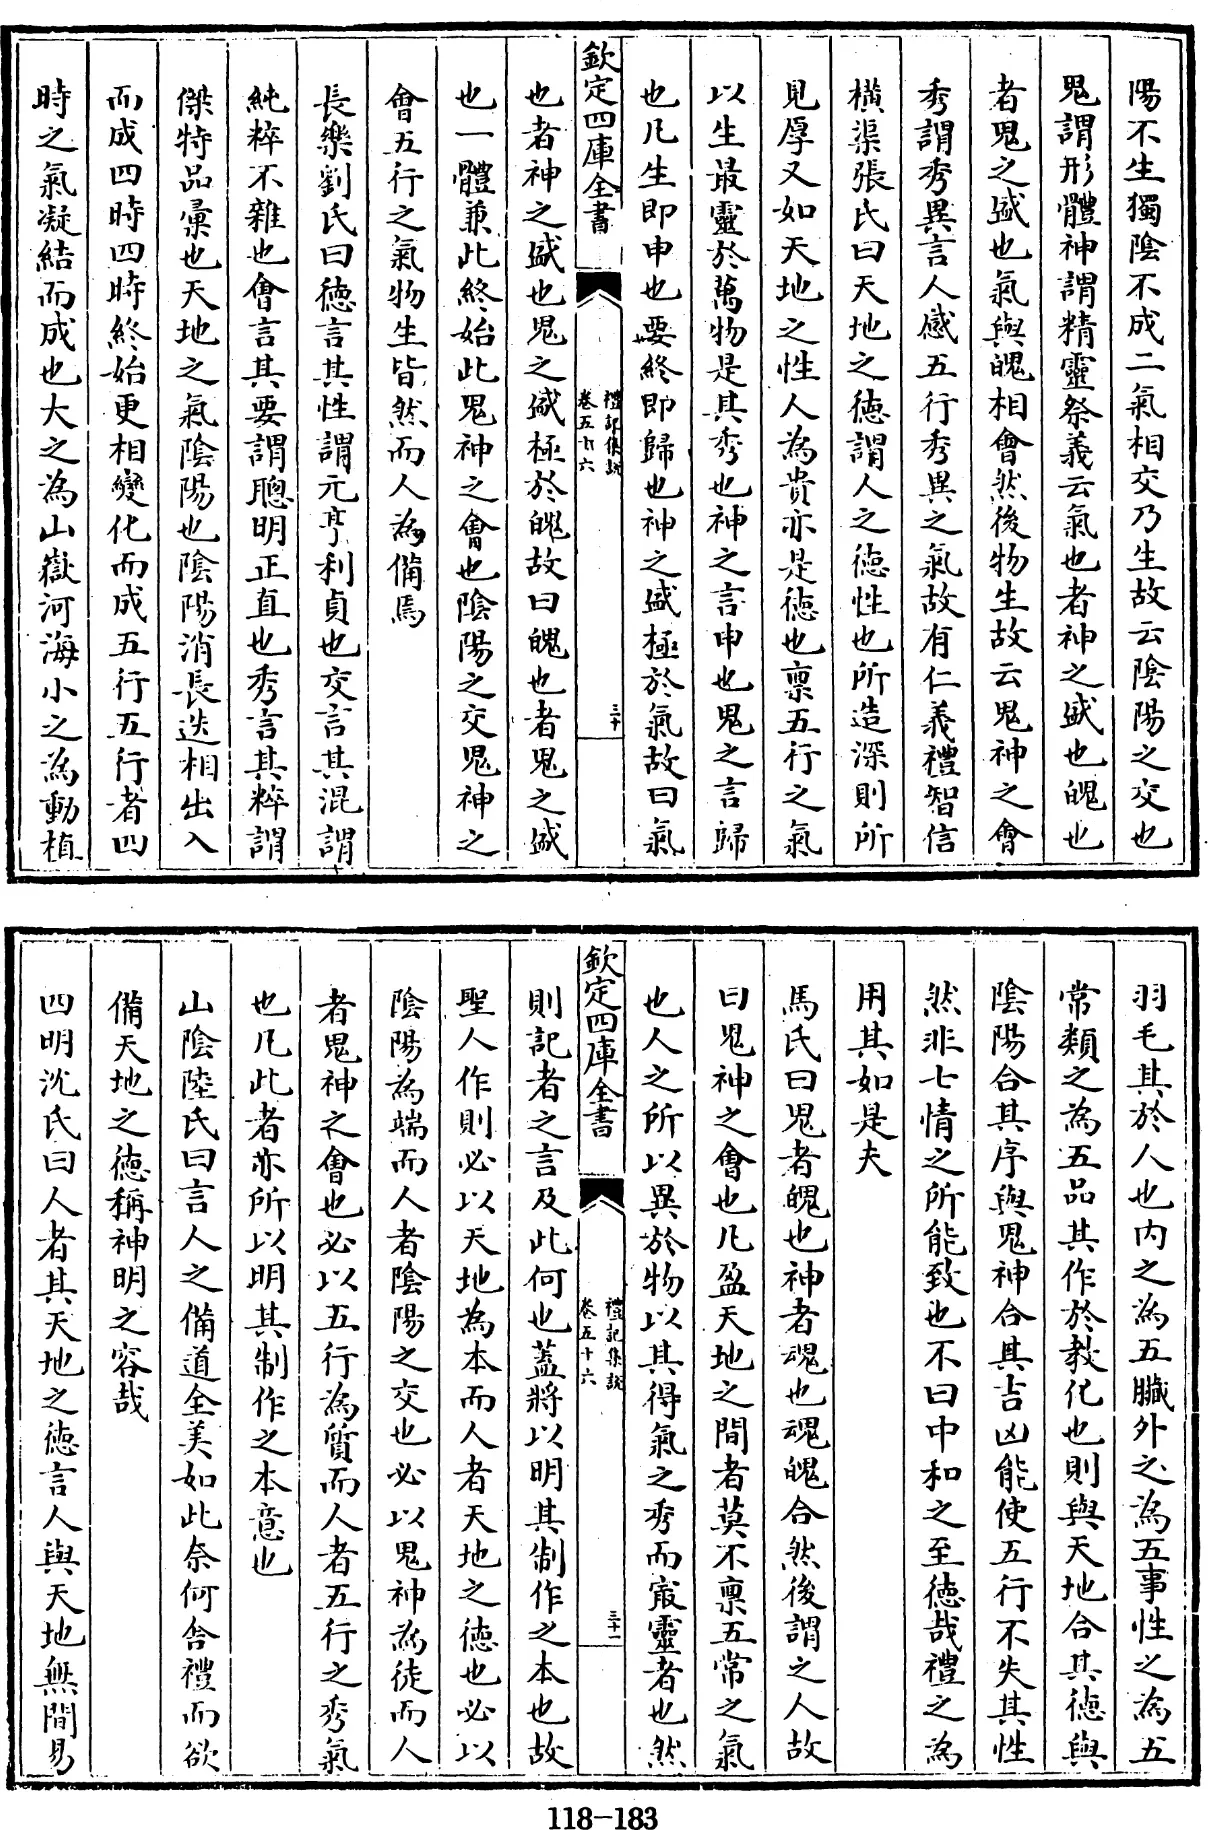 陽不生獨陰不成二氣相交乃生故云陰陽之交也
鬼謂形體神謂精靈祭義云氣也者神之盛也魄也
者鬼之盛也氣與魄相會然後物生故云鬼神之會
秀謂秀異言人感五行秀異之氣故有仁義禮智信
橫渠張氏曰天地之德謂人之德性也所造深則所
見厚又如天地之性人為貴亦是德也禀五行之氣
以生最靈於萬物是其秀也神之言申也鬼之言歸
也凡生即申也要終即歸也神之盛極於氣故曰氣
欽定四庫全書
禮記集說
卷五十六
三十
也者神之盛也鬼之盛極於魄故曰魄也者鬼之盛
也一體兼此終始此鬼神之會也陰陽之交鬼神之
會五行之氣物生皆然而人為備焉
長樂劉氏曰德言其性謂元亨利貞也交言其混謂
純粹不雜也會言其要謂聰明正直也秀言其粹謂
傑特品彙也天地之氣陰陽也陰陽消長迭相出入
而成四時四時終始更相變化而成五行五行者四
時之氣凝結而成也大之為山嶽河海小之為動植
羽毛其於人也内之為五臟外之為五事性之為五
常類之為五品其作於教化也則與天地合其德與
陰陽合其序與鬼神合其吉凶能使五行不失其性
然非七情之所能致也不曰中和之至德哉禮之為
用其如是夫
馬氏曰鬼者魄也神者魂也魂魄合然後謂之人故
曰鬼神之會也凡盈天地之間者莫不禀五常之氣
也人之所以異於物以其得氣之秀而最靈者也然
欽定四庫全書
禮記集說
卷五十六
三十一
則記者之言及此何也蓋將以明其制作之本也故
聖人作則必以天地為本而人者天地之德也必以
陰陽為端而人者陰陽之交也必以鬼神為徒而人
者鬼神之會也必以五行為質而人者五行之秀氣
也凡此者亦所以明其制作之本意也
山陰陸氏曰言人之備道全美如此奈何舍禮而欲
備天地之德稱神明之容哉
四明沈氏曰人者其天地之德言人與天地無間易
118-183